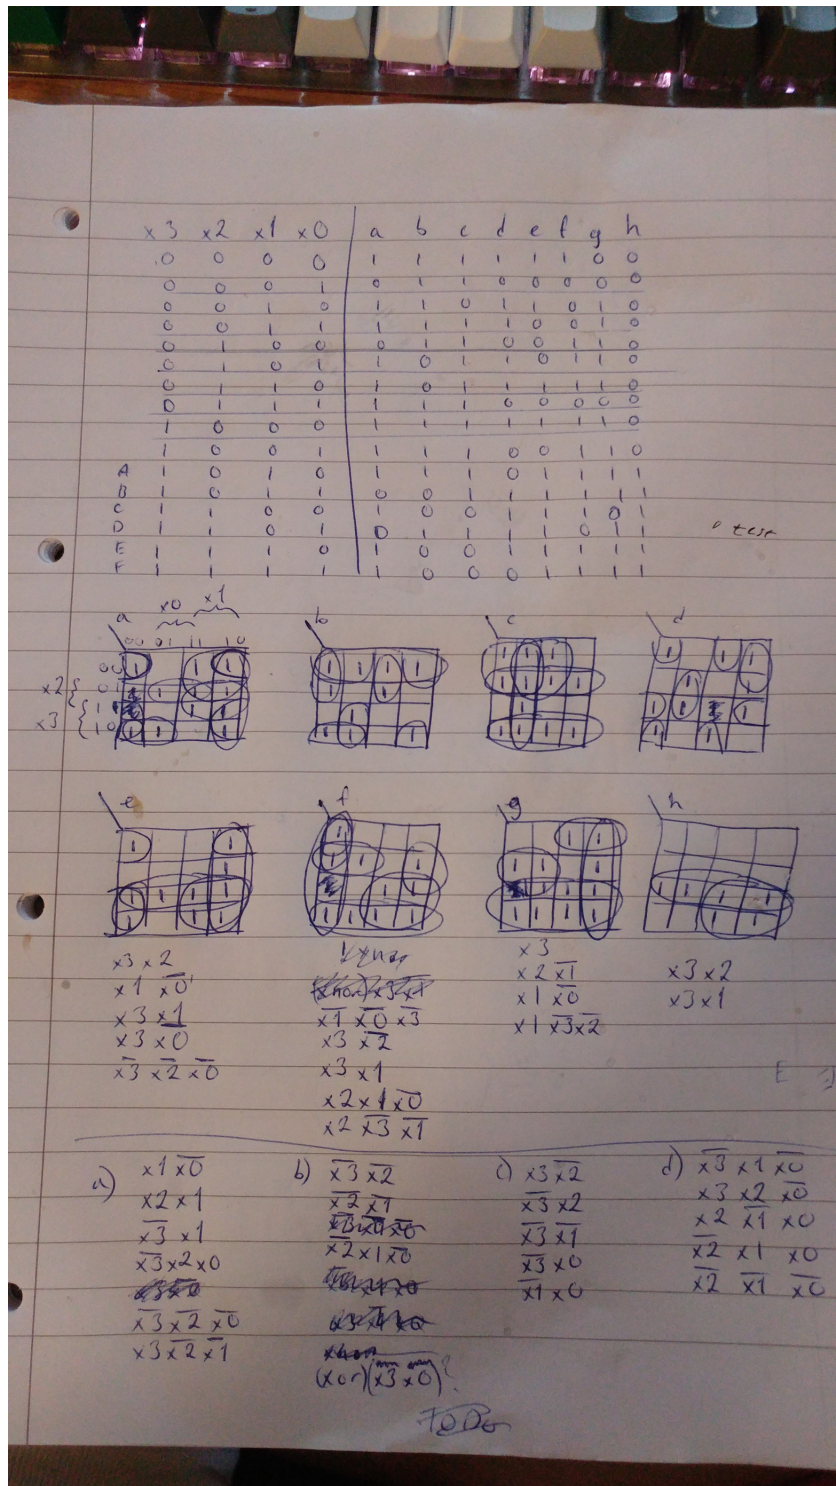 x3 x2 x1 x0 a b c d e f g h
0 0 0 0 1 1 1 1 1 1 0 0
0 0 0 1 0 1 1 0 0 0 0 0
0 0 1 0 1 1 0 1 1 0 1 0
0 0 1 1 1 1 1 1 0 0 1 0
0 1 0 0 0 1 1 0 0 1 1 0
0 1 0 1 1 0 1 1 0 1 1 0
0 1 1 0 1 0 1 1 1 1 1 0
0 1 1 1 1 1 1 0 0 0 0 0
1 0 0 0 1 1 1 1 1 1 1 0
1 0 0 1 1 1 1 0 0 1 1 0
A 1 0 1 0 1 1 1 0 1 1 1 1
B 1 0 1 1 0 0 1 1 1 1 1 1
C 1 1 0 0 1 0 0 1 1 1 0 1
D 1 1 0 1 0 1 1 1 1 0 1 1
E 1 1 1 0 1 0 0 1 1 1 1 1
F 1 1 1 1 1 0 0 0 1 1 1 1
test
x0 x1
a b c d
00 01 11 10
00 1 1 1
x2 01
x3 10
e f g h
x3 x2
x1 x̅0̅
x3 x1
x3 x̅0̅
x̅3̅ x̅2̅ x̅0̅
x̅1̅ x̅0̅ x̅3̅
x3 x̅2̅
x3 x1
x2 x1 x̅0̅
x2 x̅3̅ x̅1̅
x3
x2 x̅1̅
x1 x̅0̅
x1 x̅3̅ x̅2̅
x3 x2
x3 x1
E
a) x1 x̅0̅
x2 x1
x̅3̅ x1
x̅3̅ x2 x0
x̅3̅ x̅2̅ x̅0̅
x3 x̅2̅ x̅1̅
b) x̅3̅ x̅2̅
x̅2̅ x̅1̅
x̅2̅ x1 x̅0̅
(xor)(x3 x0)?
c) x3 x̅2̅
x̅3̅ x2
x̅3̅ x̅1̅
x̅3̅ x0
x̅1̅ x0
d) x̅3̅ x1 x̅0̅
x3 x2 x̅0̅
x2 x̅1̅ x0
x̅2̅ x1 x0
x̅2̅ x̅1̅ x̅0̅